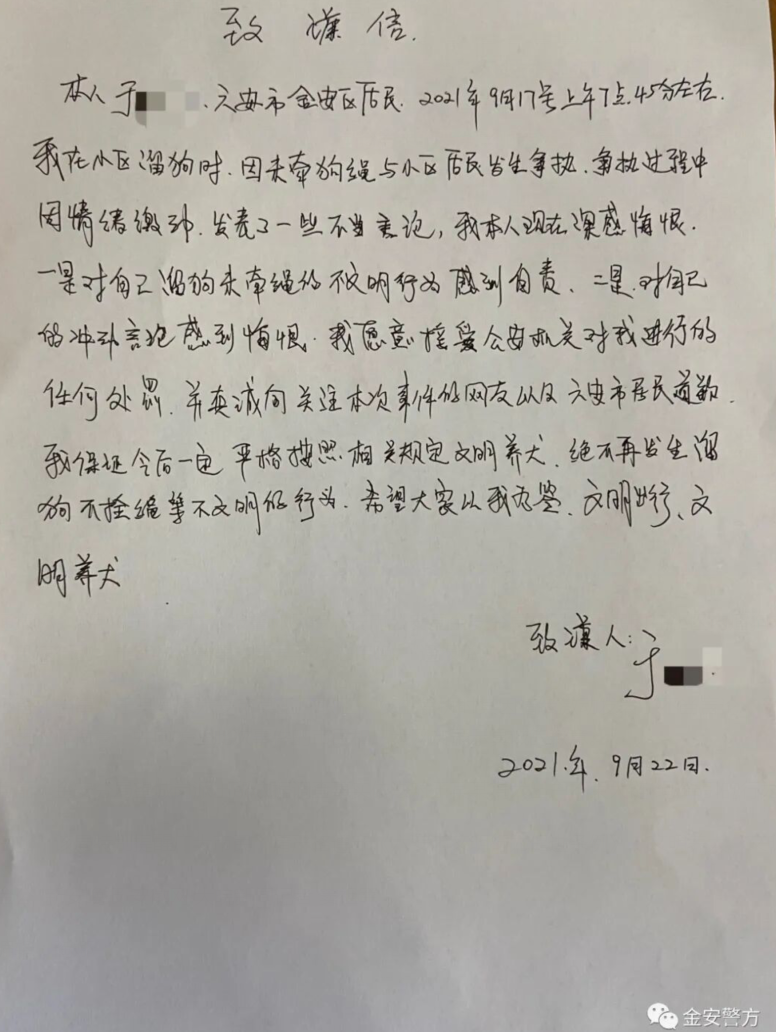 致歉信.
本人于 、六安市金安区居民. 2021年9月17号上午7点.45分左右.
我在小区溜狗时.因未牵狗绳与小区居民发生争执.争执过程中
因情绪激动.发表了一些不当言论,我本人现在深感悔恨.
一是对自己溜狗未牵绳的不文明行为感到自责、二是.对自己
的冲动言论感到悔恨.我愿意接受公安机关对我进行的
任何处罚.并真诚向关注本次事件的网友以及六安市居民道歉.
我保证今后一定严格按照相关规定文明养犬.绝不再发生溜
狗不拴绳等不文明的行为.希望大家以我为鉴、文明出行、文
明养犬
致歉人:于
2021.年.9月22日.
金安警方